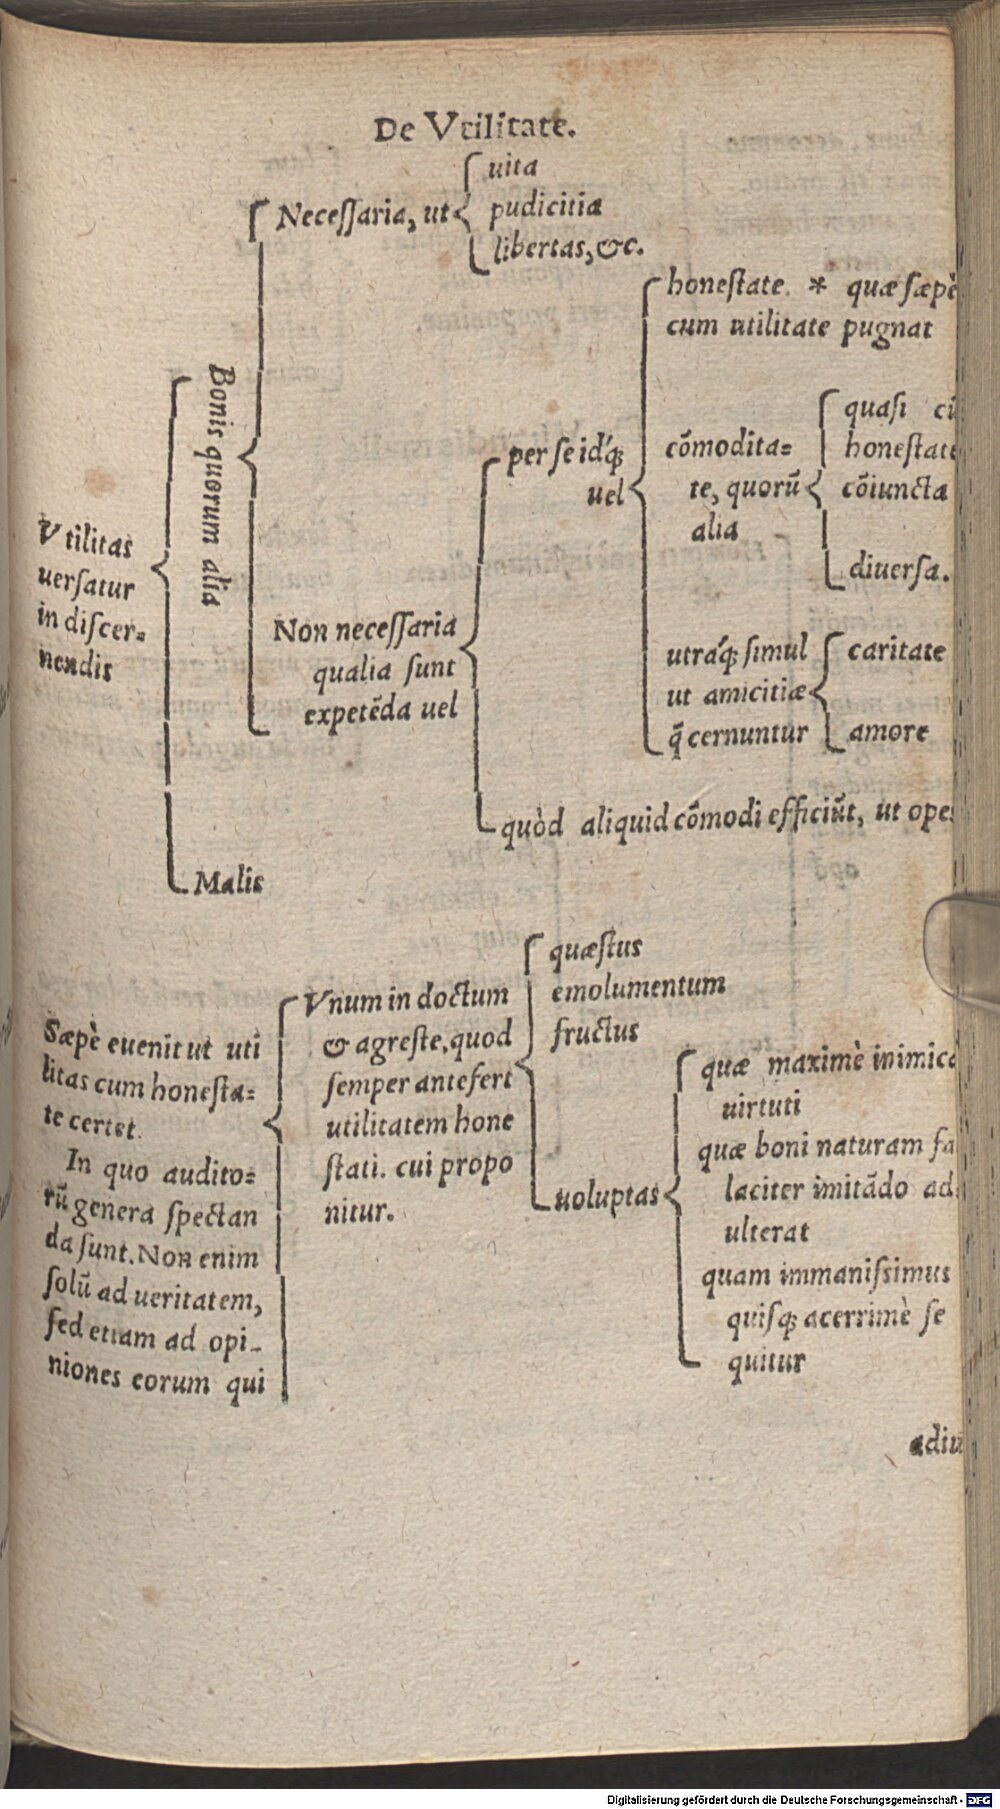 De Vtilitate.
Necessaria, ut
uita
pudicitia
libertas, &c.
Vtilitas
uersatur
in discer=
nendis
Bonis quorum alia
Non necessaria
qualia sunt
expetēda uel
per se idq́;
uel
honestate. * quæ sæpè
cum utilitate pugnat
cōmodita=
te, quorū
alia
quasi cū
honestate
cōiuncta
diuersa.
utraq́; simul
ut amicitiæ
q̄ cernuntur
caritate
amore
quòd aliquid cōmodi efficiūt, ut opes
Malis
Sæpè euenit ut uti
litas cum honesta=
te certet.
In quo audito=
rū genera spectan
da sunt. Non enim
solū ad ueritatem,
sed etiam ad opi-
niones eorum qui
Vnum in doctum
& agreste, quod
semper antefert
utilitatem hone
stati. cui propo
nitur.
quæstus
emolumentum
fructus
uoluptas
quæ maximè inimica
uirtuti
quæ boni naturam fa
laciter imitādo ad
ulterat
quam immanissimus
quisq; acerrimè se
quitur
adiu
Digitalisierung gefördert durch die Deutsche Forschungsgemeinschaft - DFG